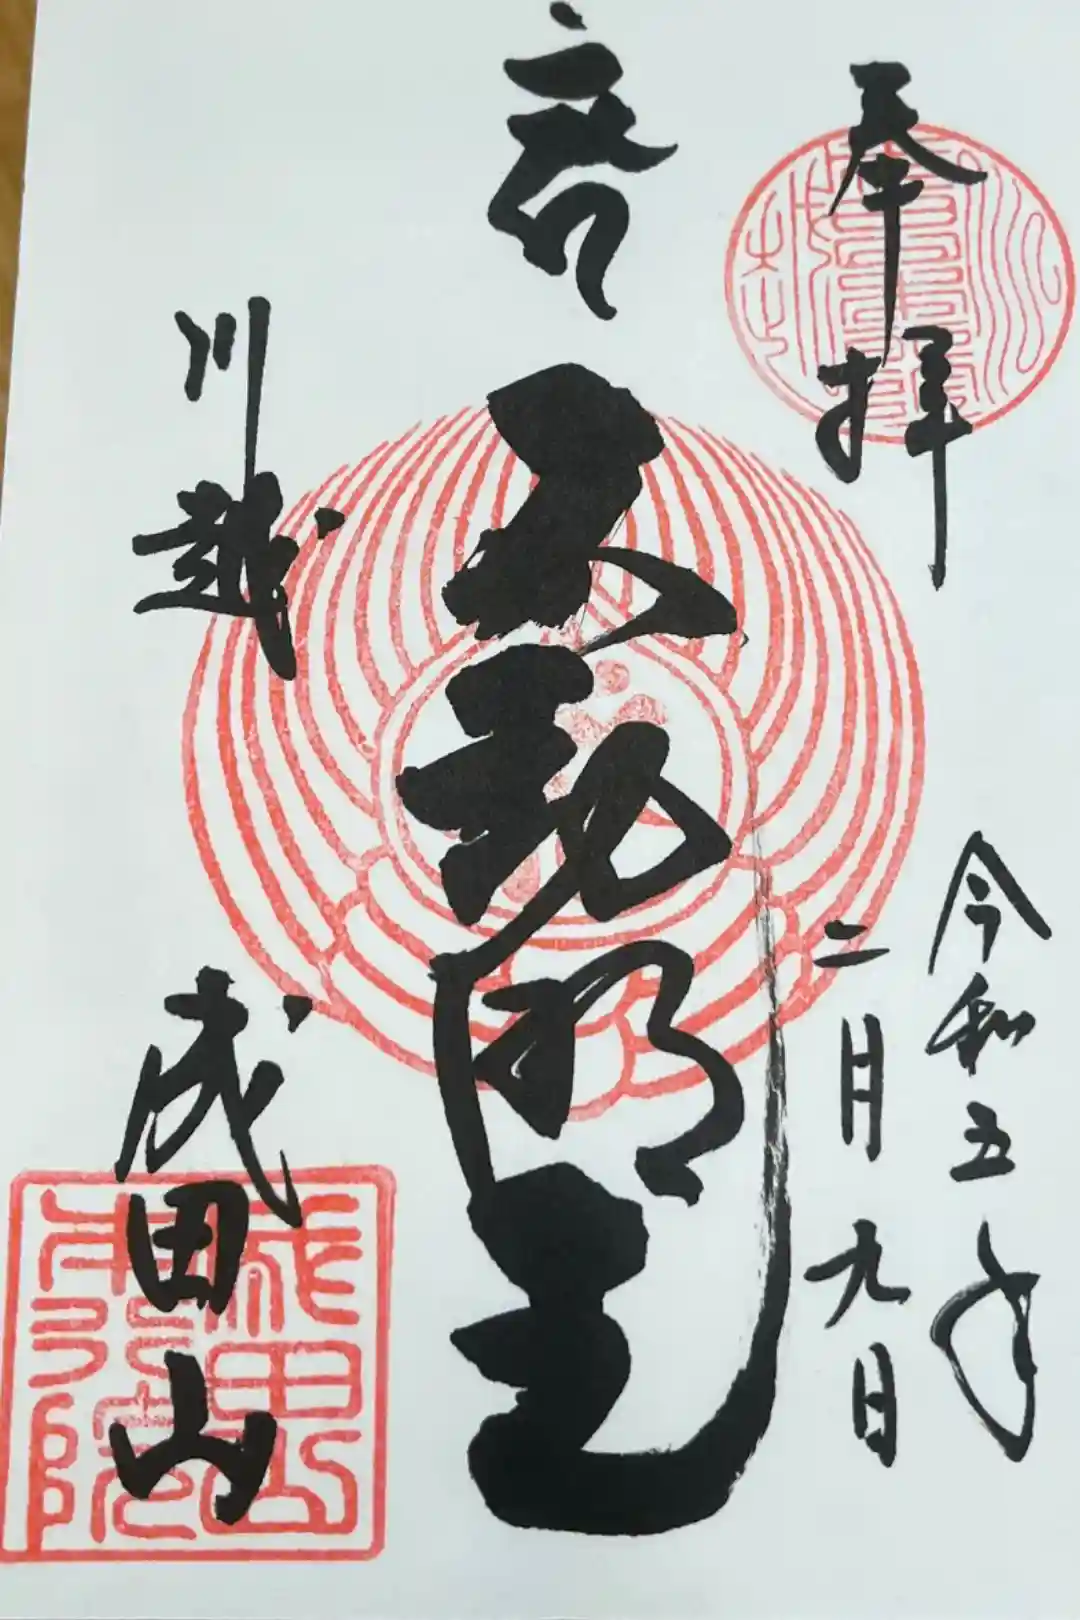 奉拝
令和五年
二月九日
不動明王
川越
成田山
成田山
本行院